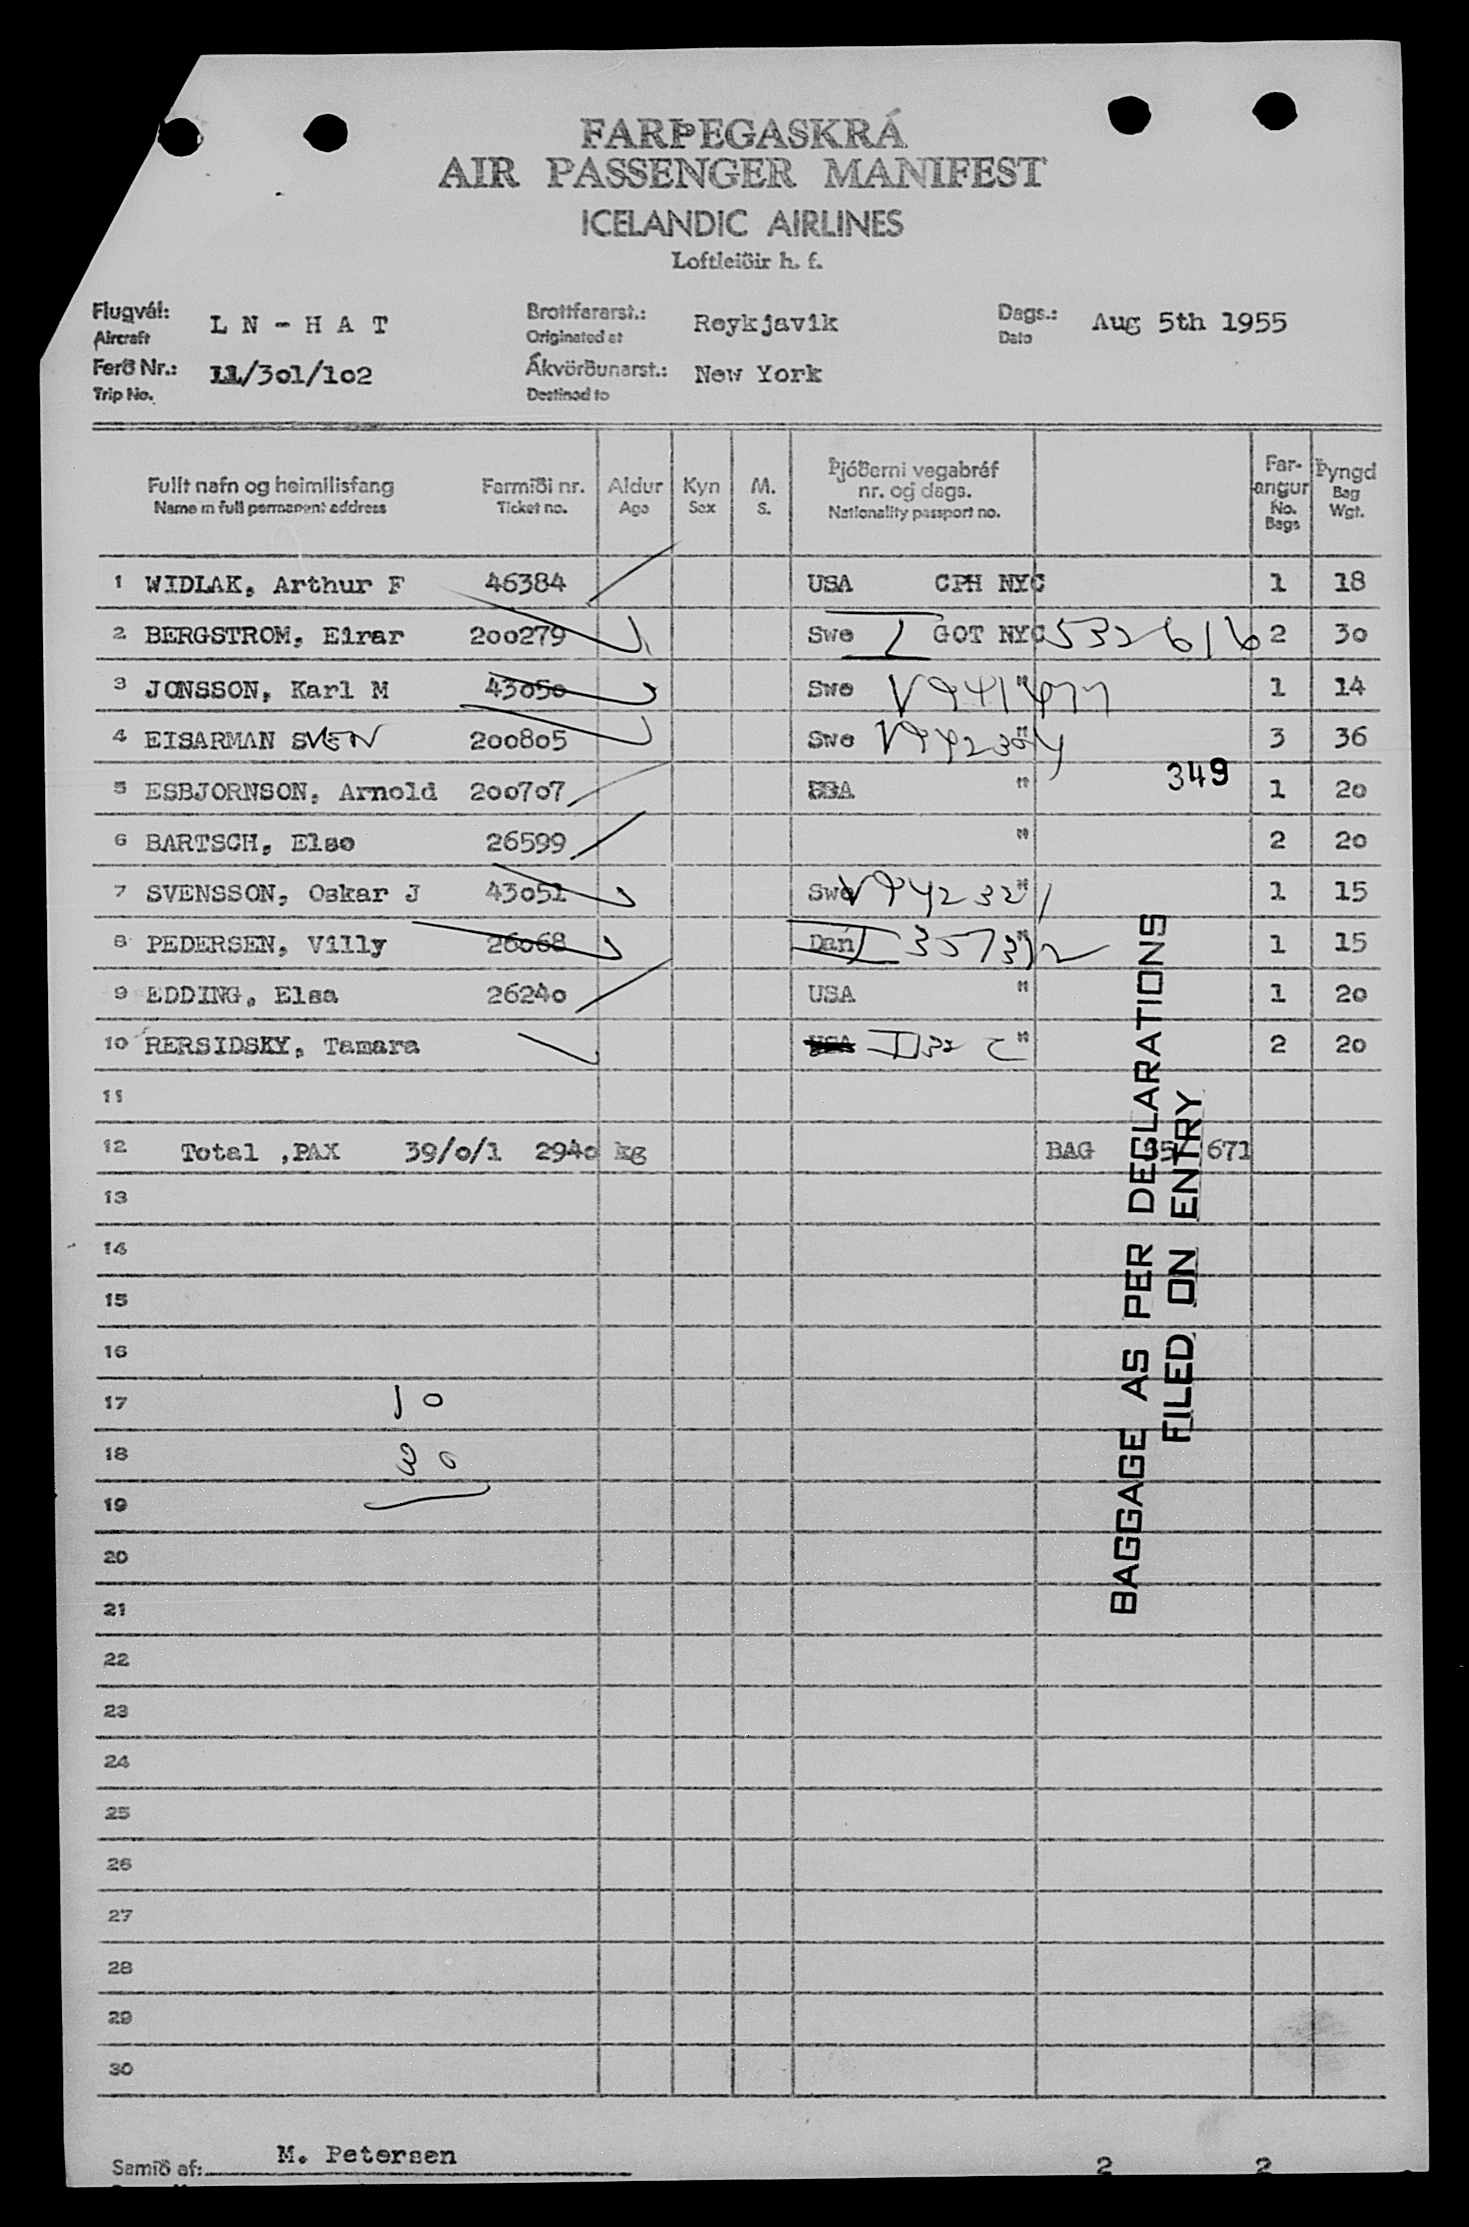 FARÞEGASKRÁ
AIR PASSENGER MANIFEST
ICELANDIC AIRLINES
Loftleiðir h. f.
Flugvél: L N - H A T Brottfararst.: Reykjavik Dags.: Aug 5th 1955
Aircraft Originated at Date
Ferð Nr.: 11/301/102 Ákvörðunarst.: New York
Trip No. Destined to
Fullt nafn og heimilisfang Farmiði nr. Aldur Kyn M. Þjóðerni vegabréf nr. og dags. Far-angur Þyngd
Name in full permanent address Ticket no. Age Sex S. Nationality passport no. No. Bags Bag Wgt.
1 WIDLAK, Arthur F 46384 USA CPH NYC 1 18
2 BERGSTROM, Eirar 200279 Swe I GOT NYC 532616 2 30
3 JONSSON, Karl M 43050 Swe " 1 14
4 EISARMAN SVEN 200805 Swe " 3 36
349
5 ESBJORNSON, Arnold 200707 " 1 20
6 BARTSCH, Else 26599 " 2 20
7 SVENSSON, Oskar J 43051 Swe " 1 15
8 PEDERSEN, Villy 26068 Dan I " 1 15
9 EDDING, Elsa 26240 USA " 1 20
10 RERSIDSKY, Tamara USA " 2 20
11
12 Total ,PAX 39/0/1 2940 kg BAG 671
13
14
15
16
17
18
19
20
21
22
23
24
25
26
27
28
29
30
BAGGAGE AS PER DECLARATIONS
FILED ON ENTRY
Samið af: M. Petersen 2 2